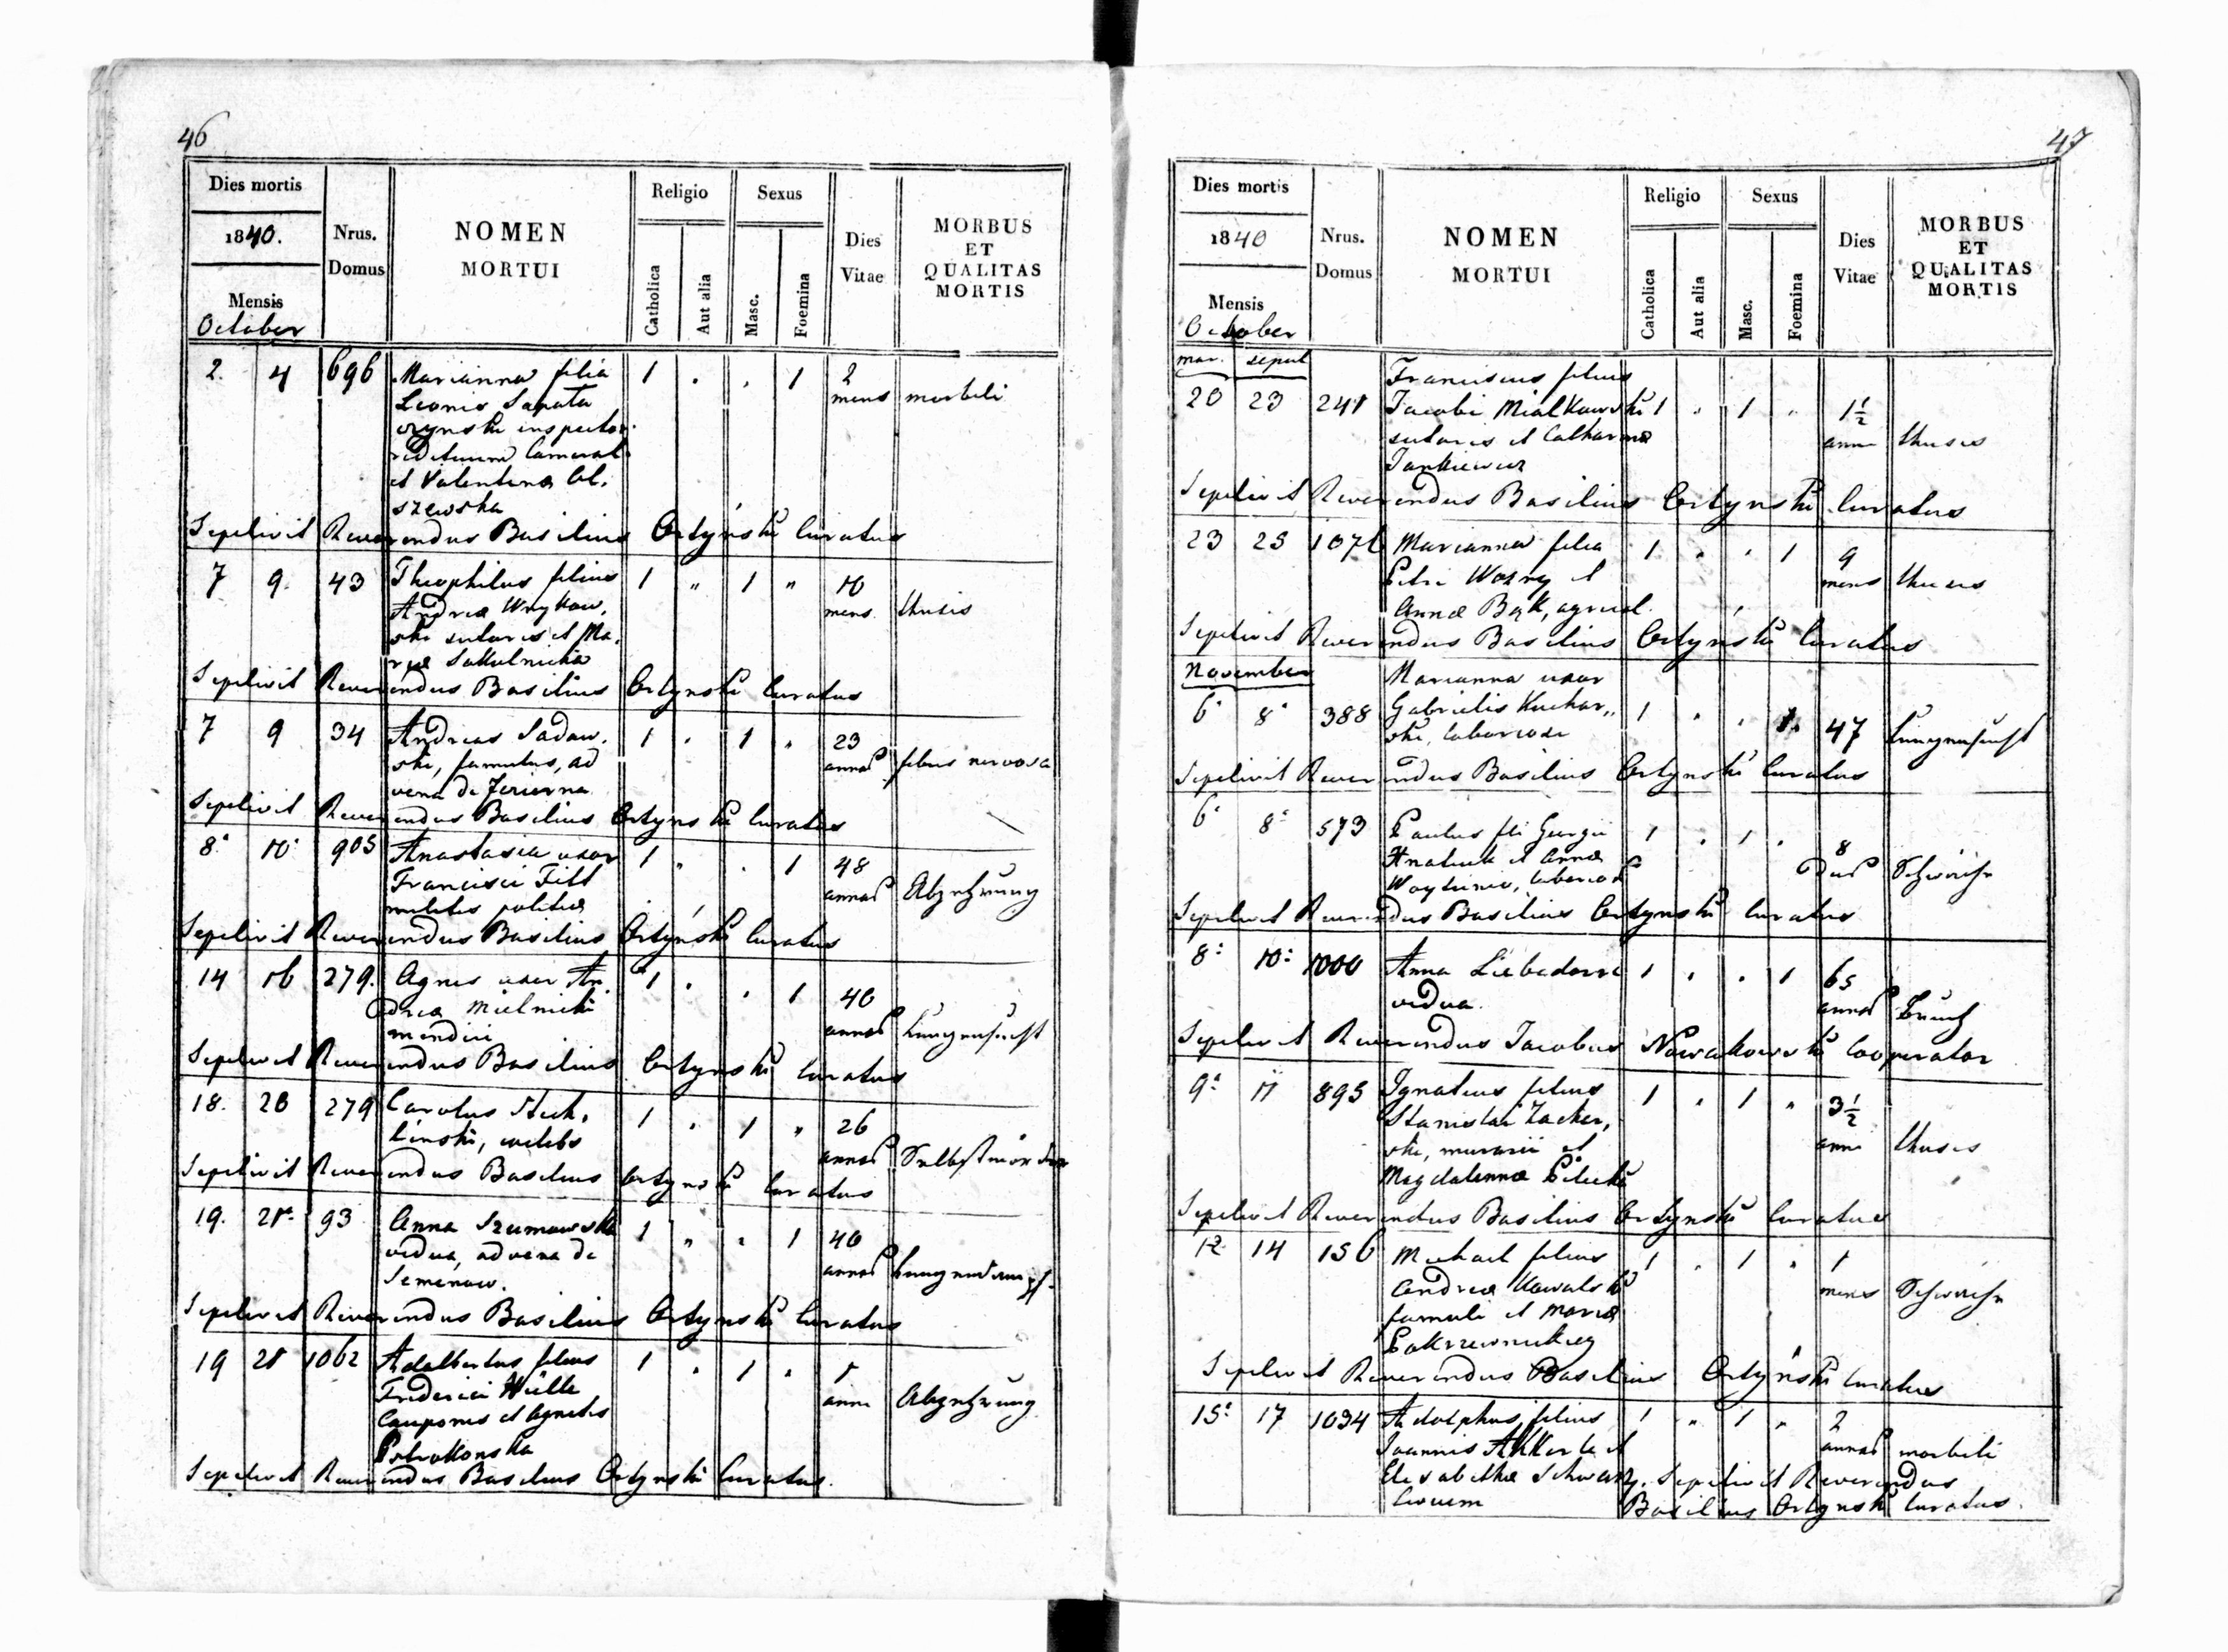 46
Dies mortis
1840.
Mensis
October
Nrus.
Domus
NOMEN
MORTUI
Religio
Catholica
Aut alia
Sexus
Masc.
Foemina
Dies
Vitae
MORBUS
ET
QUALITAS
MORTIS
2. 4 696 Marianna filia 1 . . 1 2
Leonis Sapata mens morbili
czynski inspector
redituum Cameral
et Valentina Ol.
szewska
Sepelivit Reverendus Basilius Ortyński Curatus
7 9. 43 Theophilus filius 1 " 1 " 10
Andreæ Wnykow. mens. thusis
ski sutoris et Ma.
riæ Sokulnicka
Sepelivit Reverendus Basilius Ortynski Curatus
7 9 34 Andreas Sadow. 1 . 1 " 23
ski, famulus, ad annos febris nervosa
vena de Jezierna
Sepelivit Reverendus Basilius Ortynski Curatus
8. 10. 905 Anastasia uxor 1 . . 1 48
Francisci Fitt annos Abzehrung
militis politiæ
Sepelivit Reverendus Basilius Ortyński Curatus
14 16 279. Agnes uxor An. 1 . . 1 40
dreæ Mielnicki annos Lungensucht
mendici
Sepelivit Reverendus Basilius Ortynski Curatus
18. 20 279 Carolus Stech. 1 . 1 " 26
linski, celebs annos Selbstmörder
Sepelivit Reverendus Basilius Ortynski Curatus
19. 21. 93 Anna Szumowska 1 " . 1 40
vidua, advena de annos
Semenow.
Sepelivit Reverendus Basilius Ortynski Curatus
19 21 1062 Adalbertus filius 1 . 1 . 1
Friderici Wülle anni Abzehrung
Cauponis et Agnetis
Petrokonska
Sepelivit Reverendus Basilius Ortynski Curatus.
47
Dies mortis
1840
Mensis
October
Nrus.
Domus
NOMEN
MORTUI
Religio
Catholica
Aut alia
Sexus
Masc.
Foemina
Dies
Vitae
MORBUS
ET
QUALITAS
MORTIS
mor. sepul
Franciscus filius
20 23 241 Jacobi Mialkowski 1 . 1 . 1½
sutoris et Catharinæ anni thusis
Jankiewicz
Sepelivit Reverendus Basilius Ortynski Curatus
23 25 1071 Marianna filia 1 . . 1 9
Petri Wozny et mens thusis
Annæ Bąk, agricol.
Sepelivit Reverendus Basilius Ortynski Curatus
November Marianna uxor
6. 8. 388 Gabrielis Kuchar,, 1 . . 1. 47 Lungensucht
ski, laboriosi
Sepelivit Reverendus Basilius Ortynski Curatus
6. 8. 573 Paulus fil Georgii 1 . 1 . 8
Hnatiuk et Annæ dies Schwäche
laborios
Sepelivit Reverendus Basilius Ortynski Curatus
8: 10: 1000 Anna 1 . . 1 65
vidua. annos Bruch
Sepelivit Reverendus Jacobus Nowakowski Cooperator
9. 11 895 Ignatius filius 1 . 1 " 3½
Stanislai Zacker, anni thusis
ski, murarii et
Magdalennæ Pilecki
Sepelivit Reverendus Basilius Ortynski Curatus
12. 14 156 Michael filius 1 . 1 . 1
Andreæ Kowalski mens Schwäche
famuli et Mariæ
Sepelivit Reverendus Basilius Ortyński Curatus
15. 17 1034 Adolphus filius 1 " 1 " 2
Joannis et annos morbili
Elisabethæ Schwarz. Sepelivit Reverendus
Civium Basilius Ortynski Curatus.